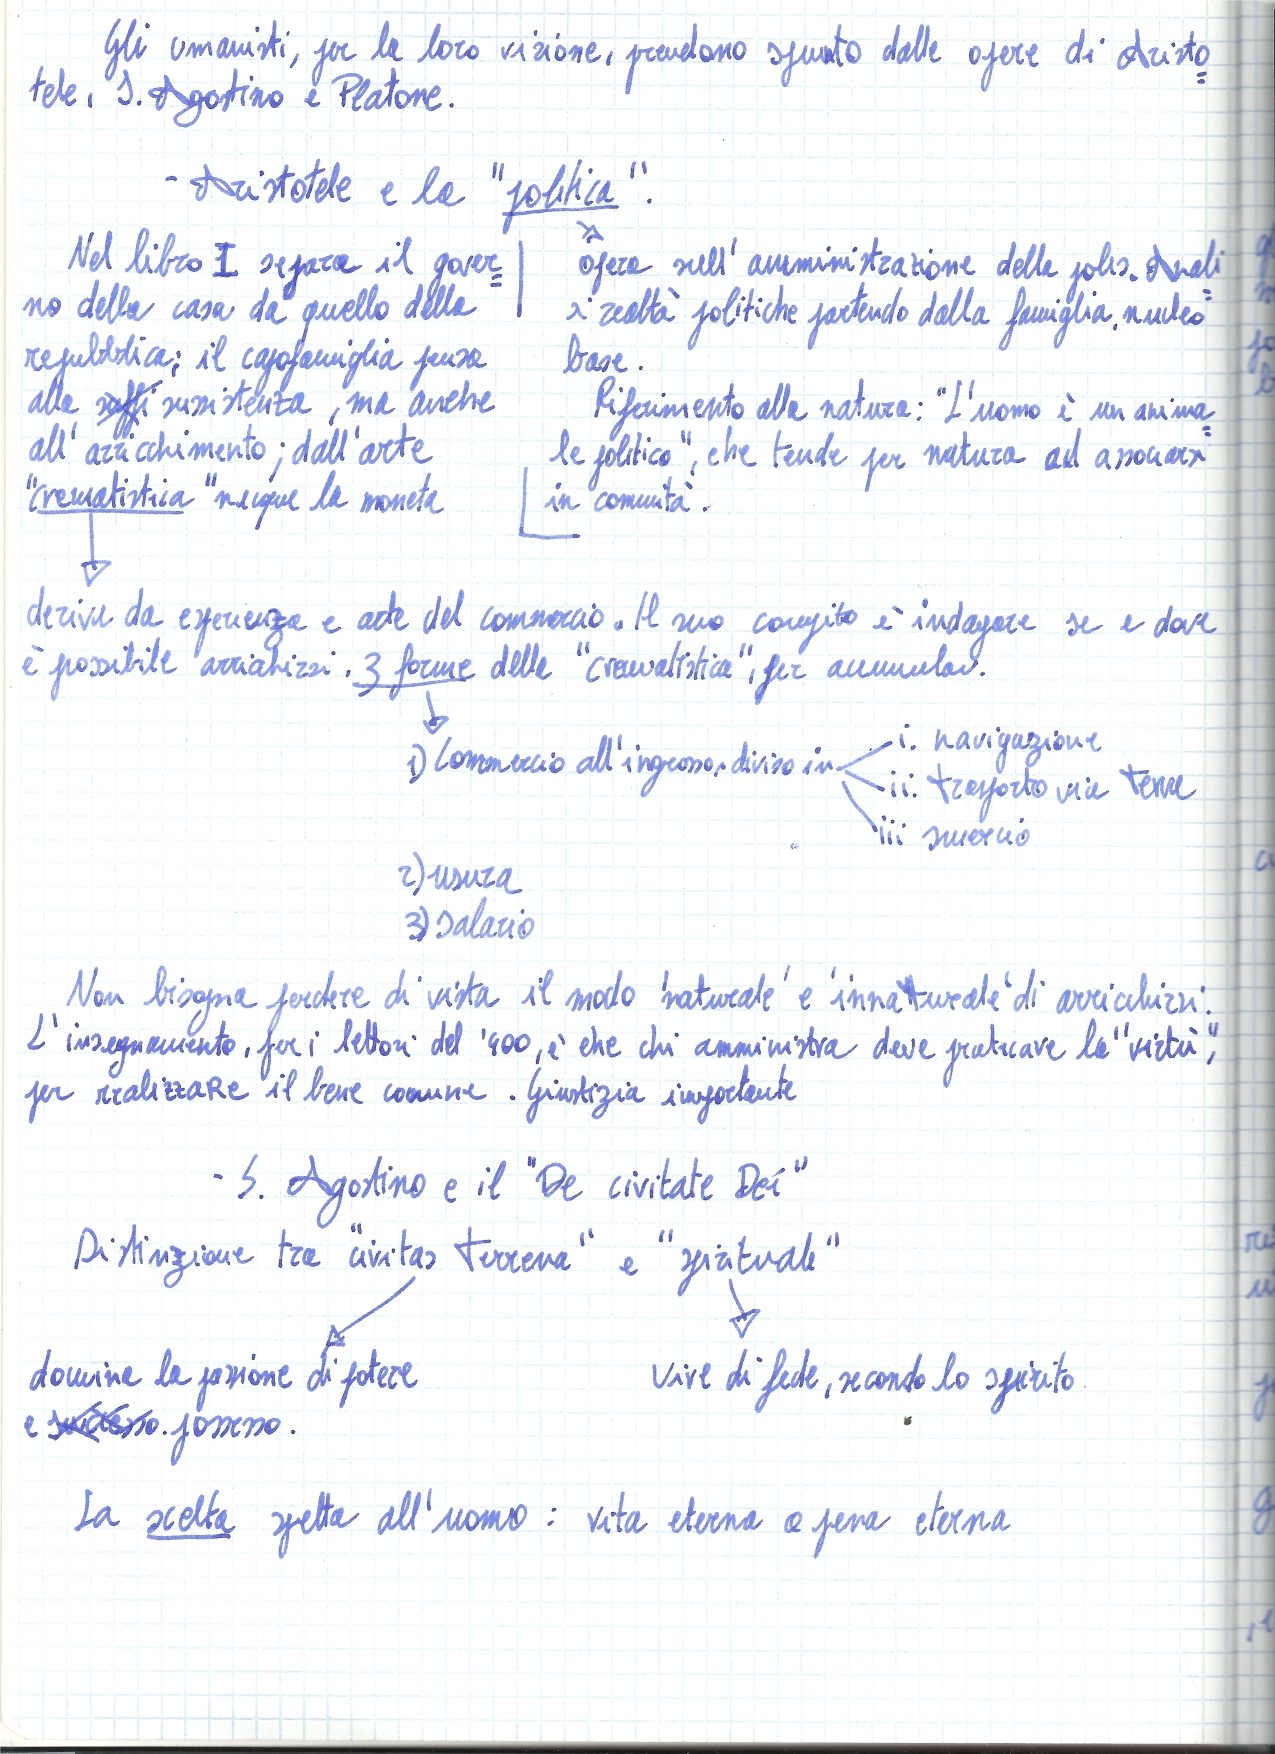 Gli umanisti, per la loro visione, prendono spunto dalle opere di Aristo
tele, S. Agostino e Platone.
- Aristotele e la "politica".
Nel libro I separa il gover
no della casa da quello della
repubblica; il capofamiglia pensa
alla sussistenza, ma anche
all'arricchimento; dall'arte
"crematistica" nacque la moneta
opera sull'amministrazione della polis. Anali
si realtà politiche partendo dalla famiglia, nucleo
base.
Riferimento alla natura: "L'uomo è un anima
le politico", che tende per natura ad associarsi
in comunità.
deriva da esperienza e arte del commercio. Il suo compito è indagare se e dove
è possibile arricchirsi. 3 forme della "crematistica", per accumulare.
1) Commercio all'ingrosso, diviso in
i. navigazione
ii. trasporto via terra
iii smercio
2) usura
3) salario
Non bisogna perdere di vista il modo 'naturale' e 'innaturale' di arricchirsi.
L'insegnamento, per i lettori del '400, è che chi amministra deve praticare la "virtù",
per realizzare il bene comune. Giustizia importante
- S. Agostino e il "De civitate Dei"
Distinzione tra "civitas terrena" e "spirituale"
domina la passione di potere
e possesso.
Vive di fede, secondo lo spirito
La scelta spetta all'uomo: vita eterna o pena eterna